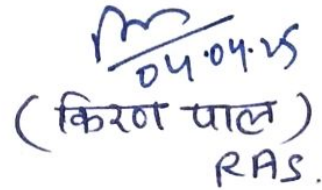 04.04.25
(किरण पाल)
RAS.